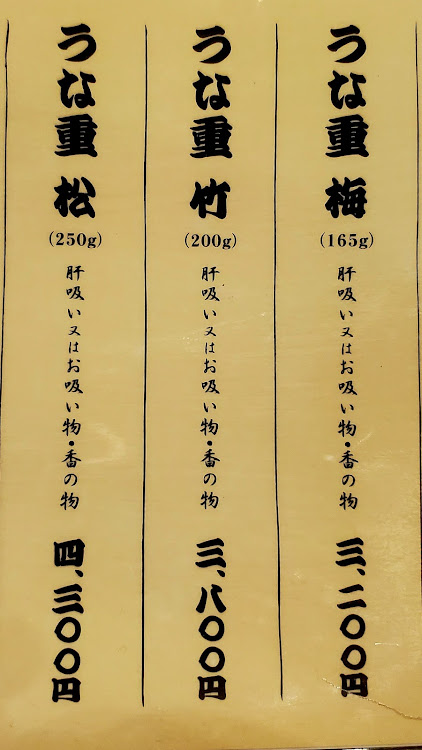 うな重 梅
(165g)
肝吸い又はお吸い物・番の物
三、二〇〇円
うな重 竹
(200g)
肝吸い又はお吸い物・番の物
三、八〇〇円
うな重 松
(250g)
肝吸い又はお吸い物・番の物
四、三〇〇円